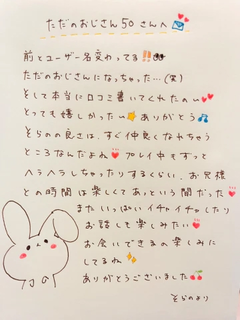 ただのおじさん50さんへ
前とユーザー名変わってる‼️👀
ただのおじさんになっちゃった…(笑)
そして本当に口コミ書いてくれたのい💕
とっても嬉しかったい⭐ありがとう💃
そらのの良さは、すぐ仲良くなれちゃう
ところなんだよね❤️プレイ中もずって
ヘラヘラしちゃったりするくらい、お兄様
との時間は楽しくてあっという間だった❤️
またいっぱいイチャイチャしたり
お話して楽しみたい❤️
お会いできるの楽しみに
してるね✨
ありがとうございました🍒
そらのより